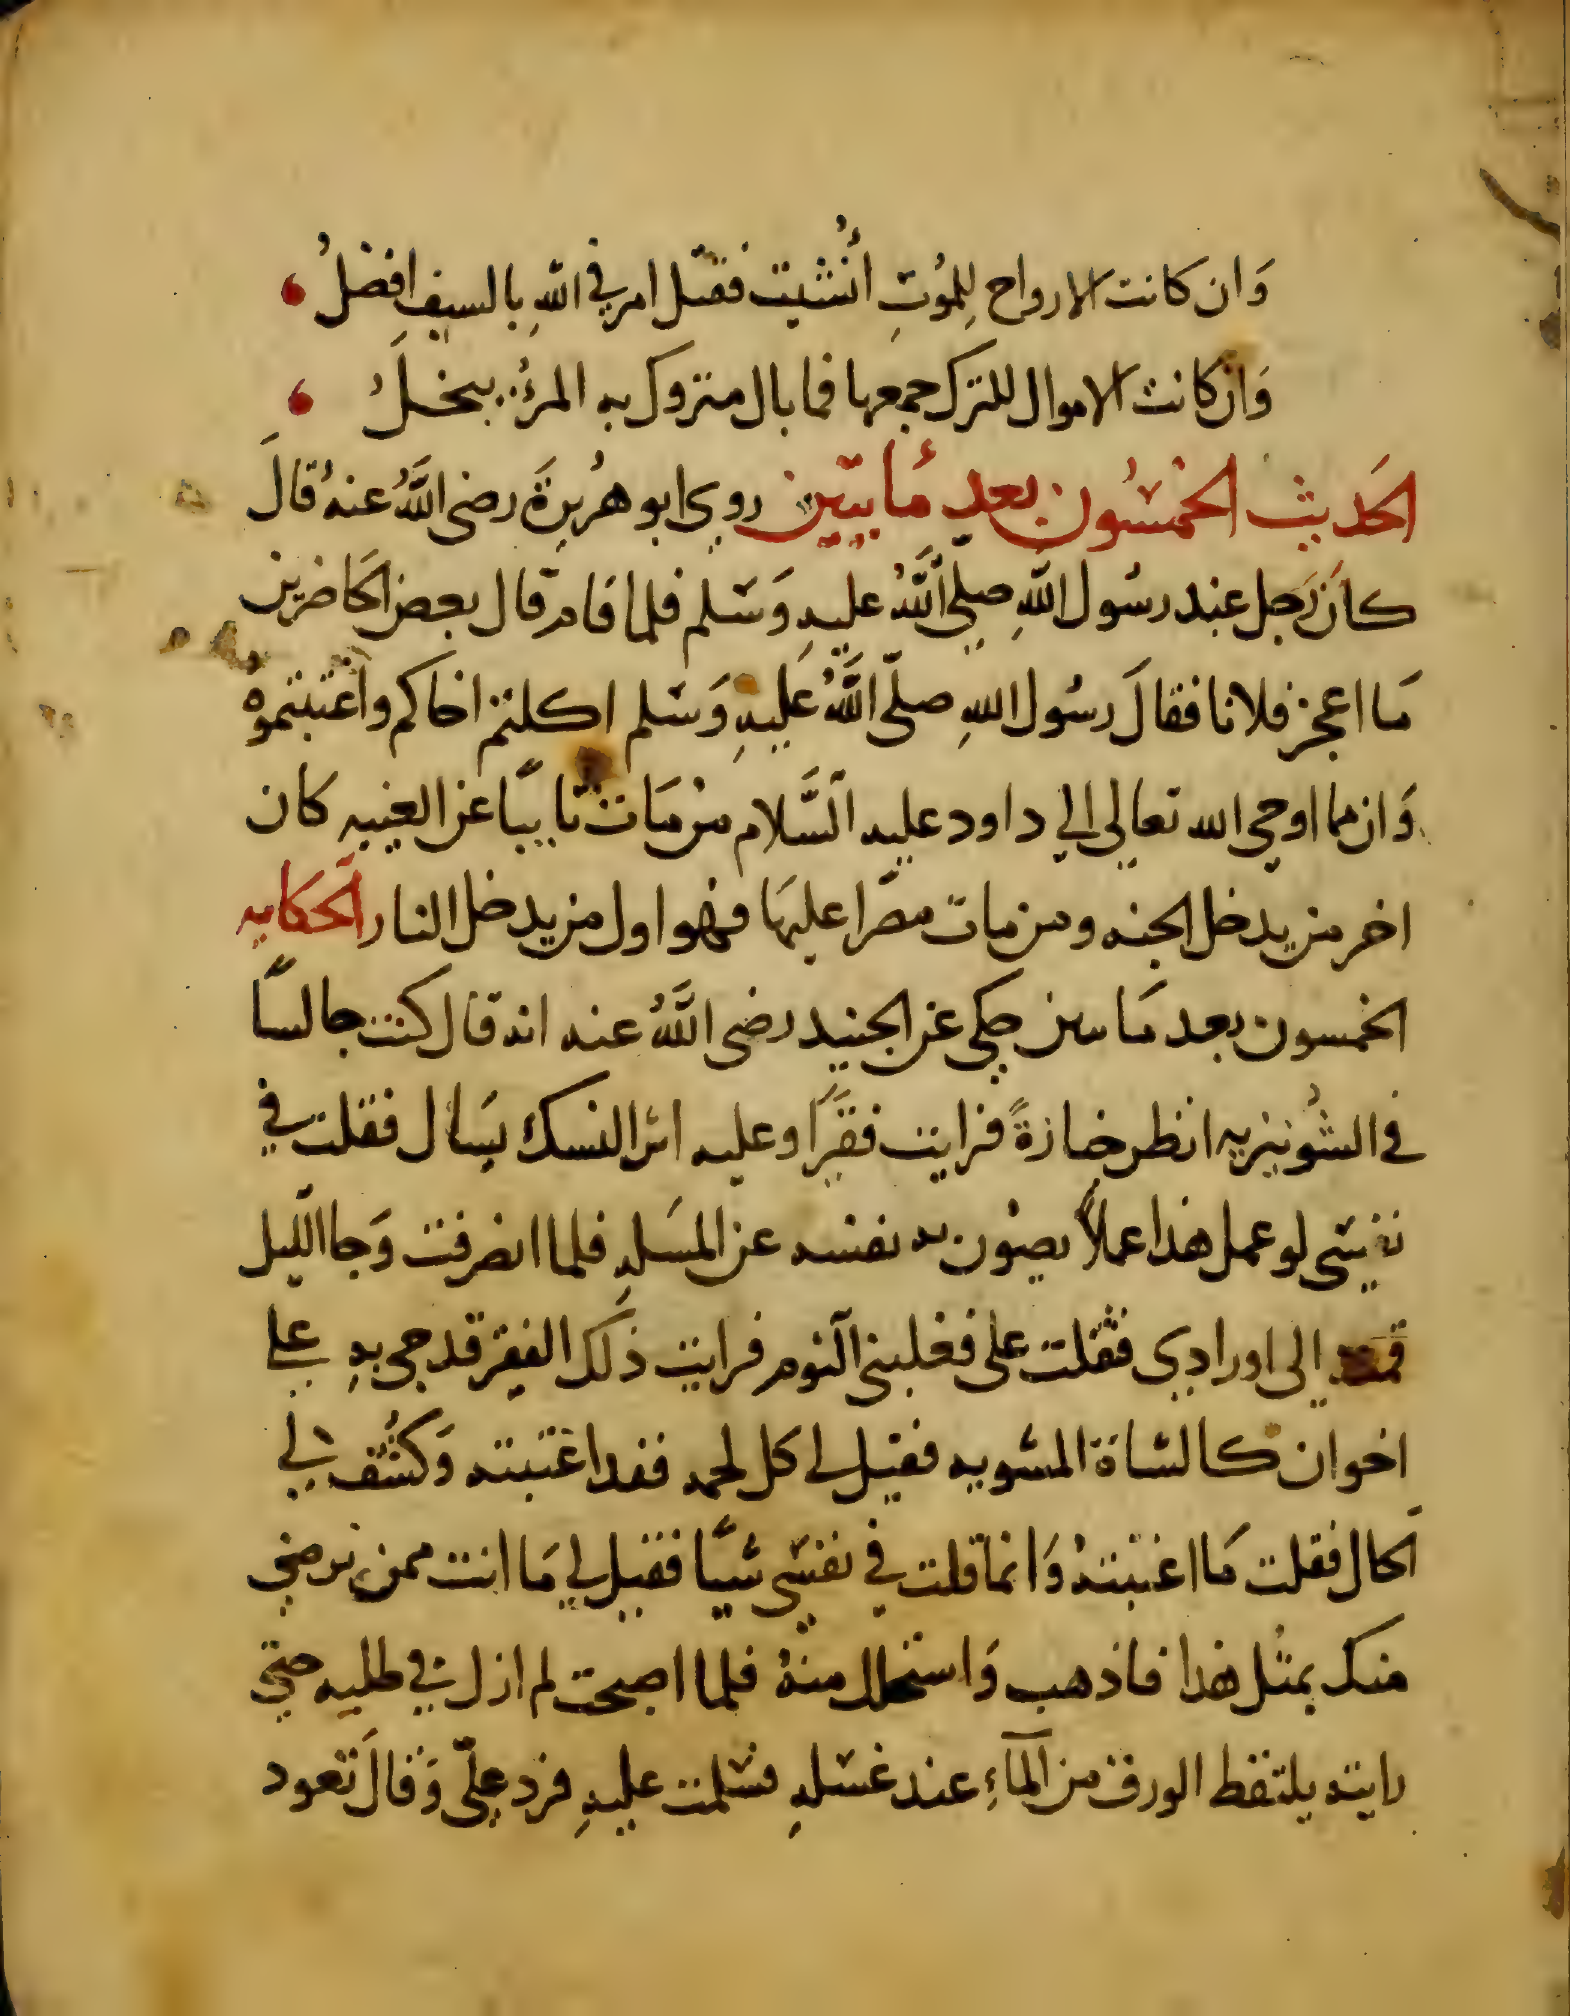 وَان كانت الارواح لِلمُوتِ أُنْشيت فقتل امر في اللهِ بالسيفِ افضلُ
وَان كانت الاموال للترك جمعها فما بال متروك به المرؤ يبخلُ
الحَديث الخمسُون بعد مُايتين روي ابو هُريرَة رضى اللهُ عنهُ قالَ
كانَ رَجل عند رسُول اللهِ صلى اللهُ عليهِ وَسَلم فلما قام قال بعض الحَاضرين
مَا اعجز فلانا فقالَ رسُول اللهِ صلّى اللهُ عَليهِ وَسَلم اكلتم اخاكم واغتبتموهُ
وَان مما اوحى الله تعالى الي داود عليه السَّلام من مَات تايبًا عن الغيبه كان
اخر من يدخل الجنه ومن مات مصّرا عليهَا فهو اول من يدخل النار الحكايه
الخمسون بعد مَاسن حكى عن الجنيد رضى اللهُ عنه انه قال كنت جالسًا
في الشُونيزيه انظر جنازةً فرايت فقيرًا وعليه اثر النسك يسَال فقلت في
نفسى لو عمل هَذا عملاً يصُون به نفسه عن المسَلهِ فلما انصرفت وَجا الّليل
قمت الى اورادِى فثقلت على فغلبنى النوم فرايت ذلك الفقير قد جى بهِ على
اخوان كالشاة المشويه فقيل لى كل لحمه فقد اغتبته وَكُشف لي
الحال فقلت مَا اغتبتهُ وَانما قلت في نفسَى شيًا فقيل لي مَا انت ممن نرضى
منك بمثل هَذا فاذهب وَاستحلل منهُ فلما اصبحت لم ازل في طلبه حتى
رايته يلتقط الورق من المآءِ عند غسَلهِ فسَلمت عليهِ فرد علّى وَقالَ تعود